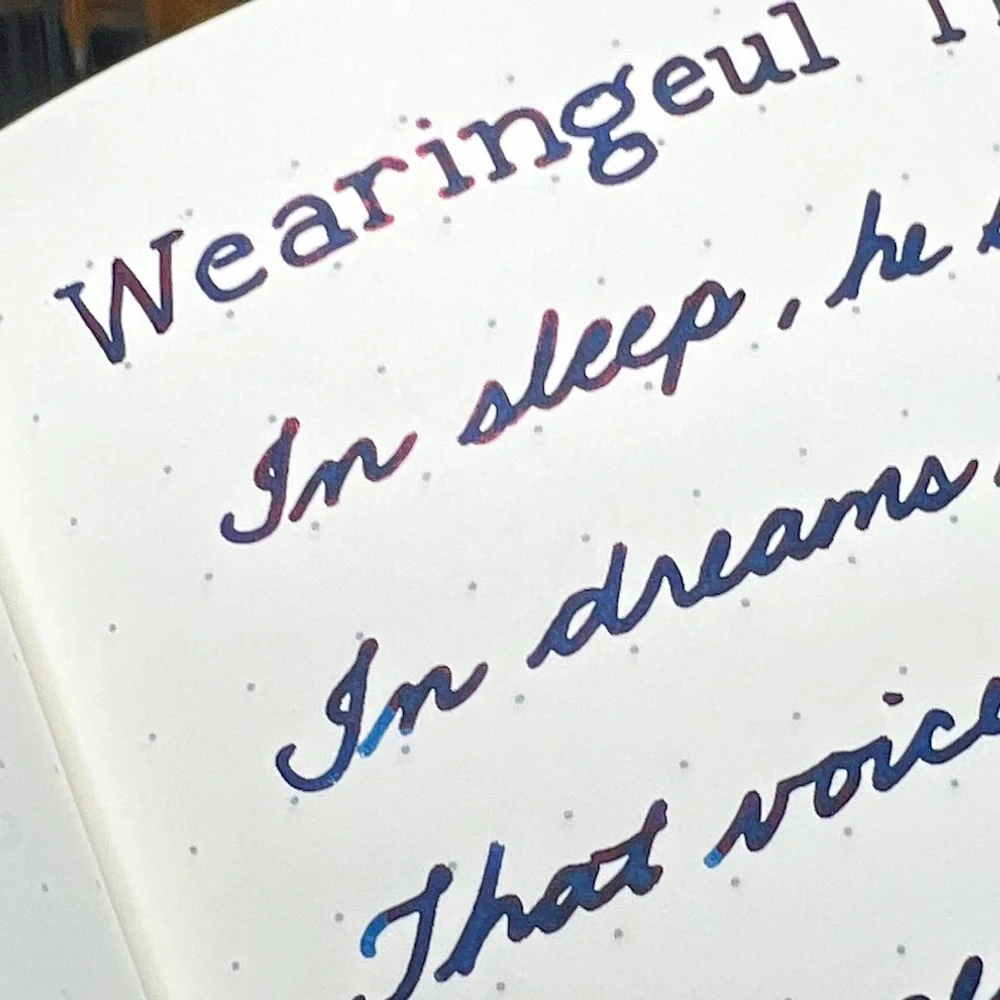 Wearingeul
In sleep, he
In dreams,
That voice